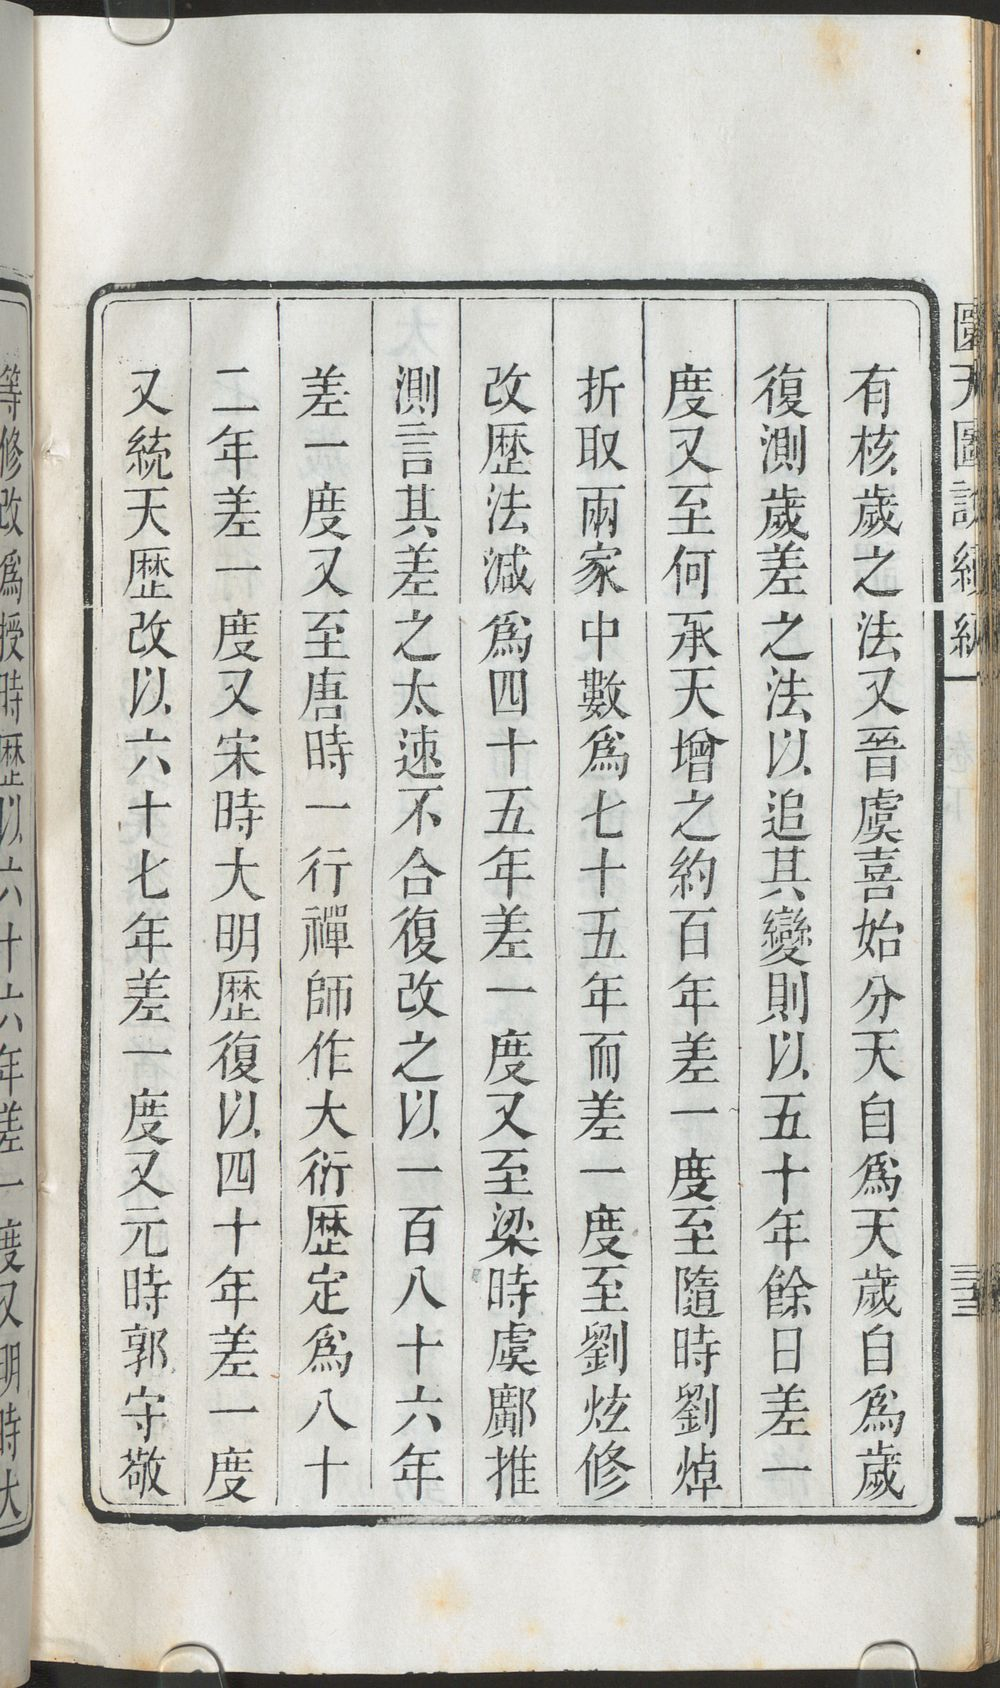 圜天圖說續編
卷下
三十三
有核歲之法又晉虞喜始分天自為天歲自為歲
復測歲差之法以追其變則以五十年餘日差一
度又至何承天增之約百年差一度至隨時劉焯
折取兩家中數為七十五年而差一度至劉炫修
改歷法減為四十五年差一度又至梁時虞鄺推
測言其差之太速不合復改之以一百八十六年
差一度又至唐時一行禪師作大衍歷定為八十
二年差一度又宋時大明歷復以四十年差一度
又統天歷改以六十七年差一度又元時郭守敬
等修改為授時歷以六十六年差一度又明時大